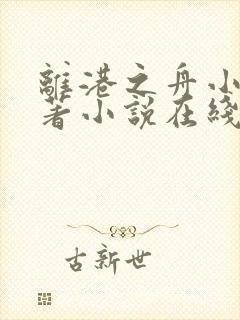 離港之舟小
著小說在綫
古新世